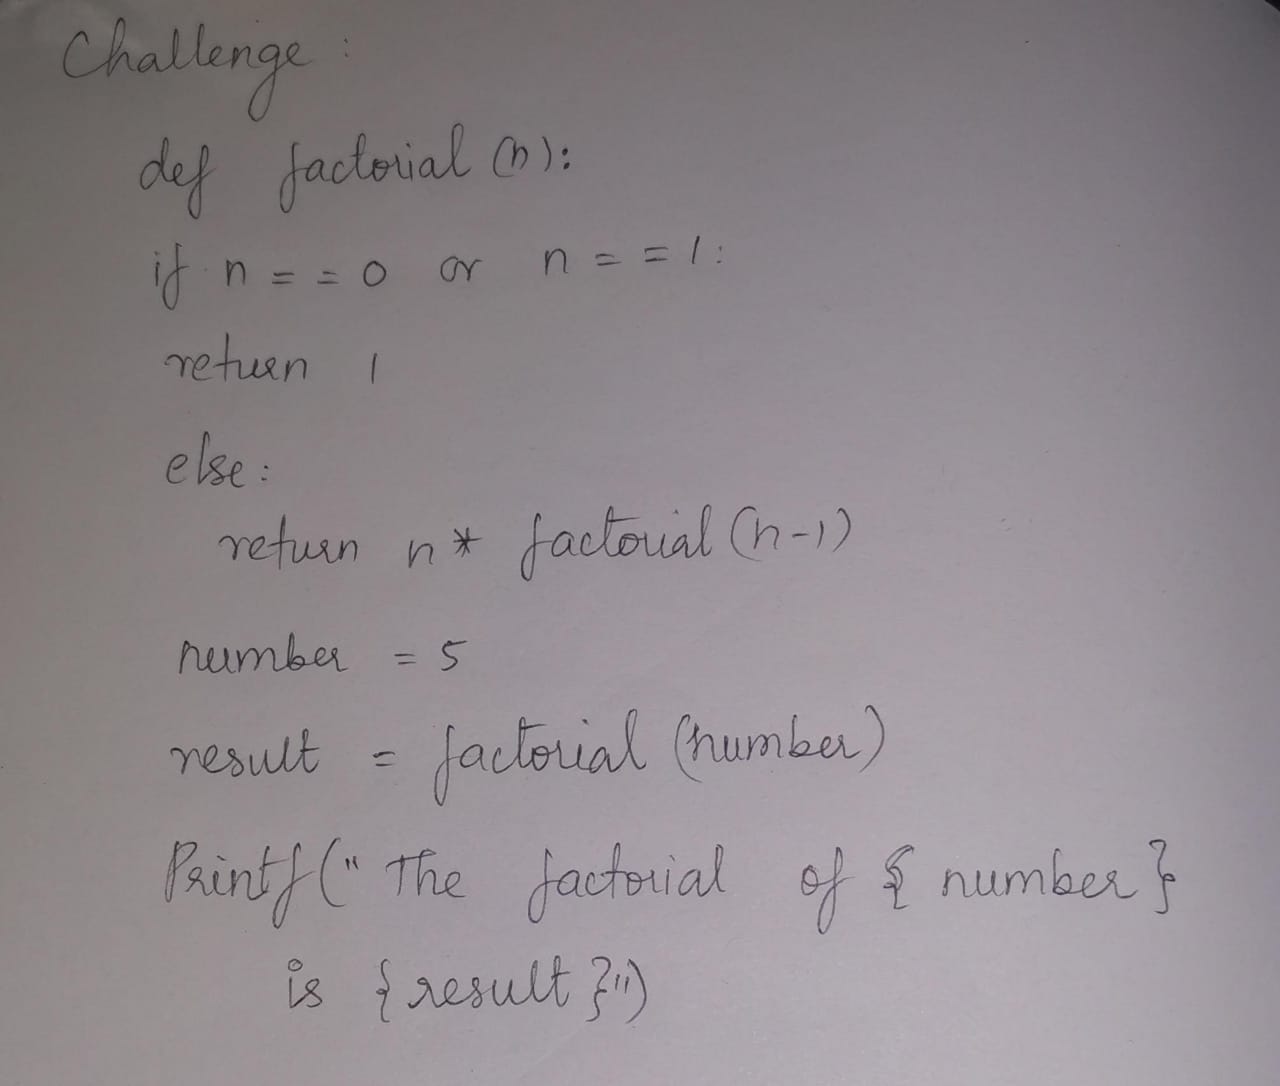 Challenge :
def factorial (n):
if n == 0 or n == 1:
return 1
else:
return n * factorial (n-1)
number = 5
result = factorial (number)
Printf(" The factorial of { number }
is { result }")